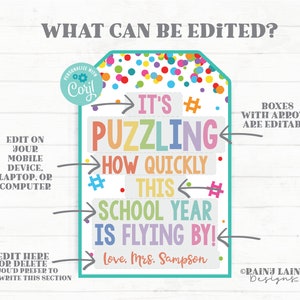 WHAT CAN BE EDITED?
PERSONALIZE WITH
Corjl
IT'S
PUZZLING
HOW QUICKLY
THIS
SCHOOL YEAR
IS FLYING BY!
Love, Mrs. Sampson
BOXES
WITH ARROW
ARE EDITAB
EDIT ON
YOUR
MOBILE
DEVICE,
LAPTOP, OR
COMPUTER
EDIT HERE
OR DELETE
OULD PREFER TO
WRITE THIS SECTION
©RAINJ LAIN
Designs